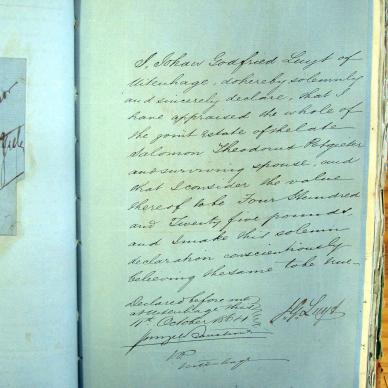 I, Johan Godfried Luyt of
Uitenhage, do hereby solemnly
and sincerely declare, that I
have appraised the whole of
the joint Estate of the late
Salomon Theodorus Potgieter
and surviving spouse, and
that I consider the value
thereof to be Four Hundred
and Twenty five pounds
and I make this solemn
declaration conscientiously
believing the same to be true.
Declared before me
at Uitenhage this
11th October 1864
J.G. Luyt
JP
Uitenhage